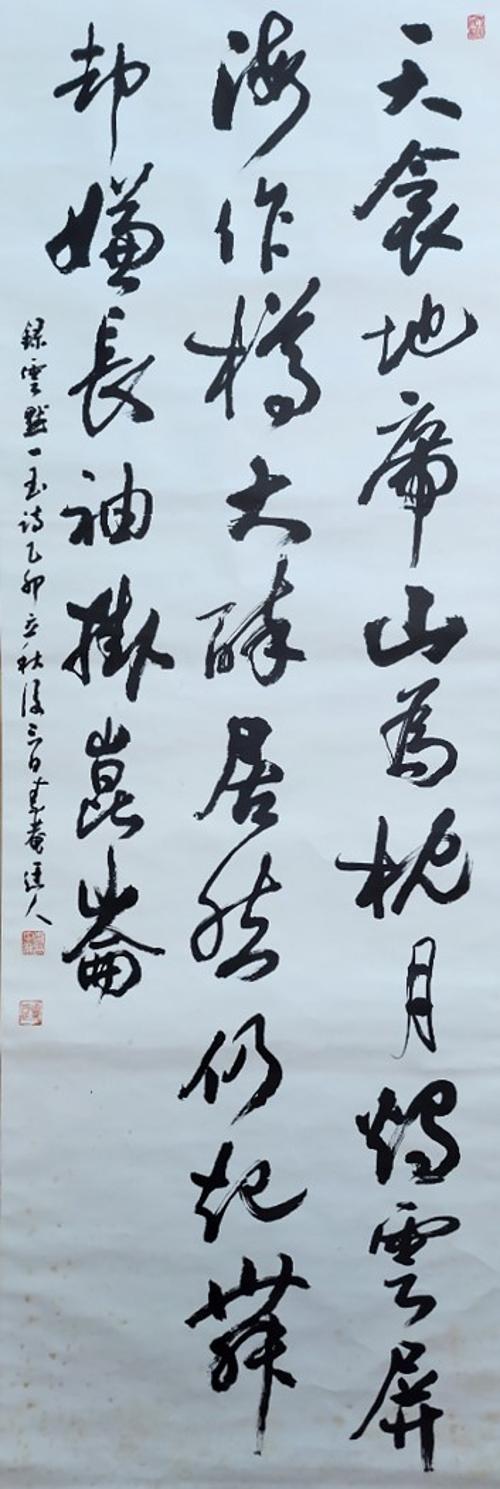 天衾地席山為枕月燭雲屏
海作樽大醉居然仍起舞
却嫌長袖掛崑崙
錄震默一玉詩乙卯立秋後三日菴人